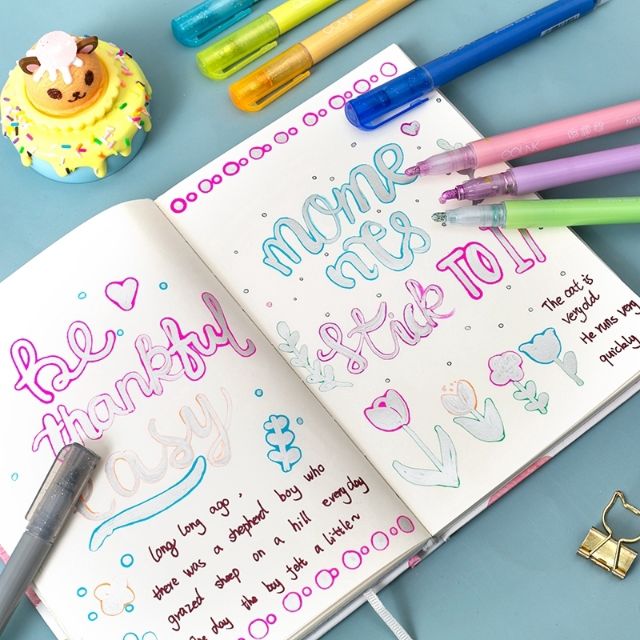 be
thankful
easy
long long ago,
there was a shepherd boy who
grazed sheep on a hill everyday
day the boy felt a little~
mome
nts
stick TO IT
The cat is
very old
He runs very
quickly